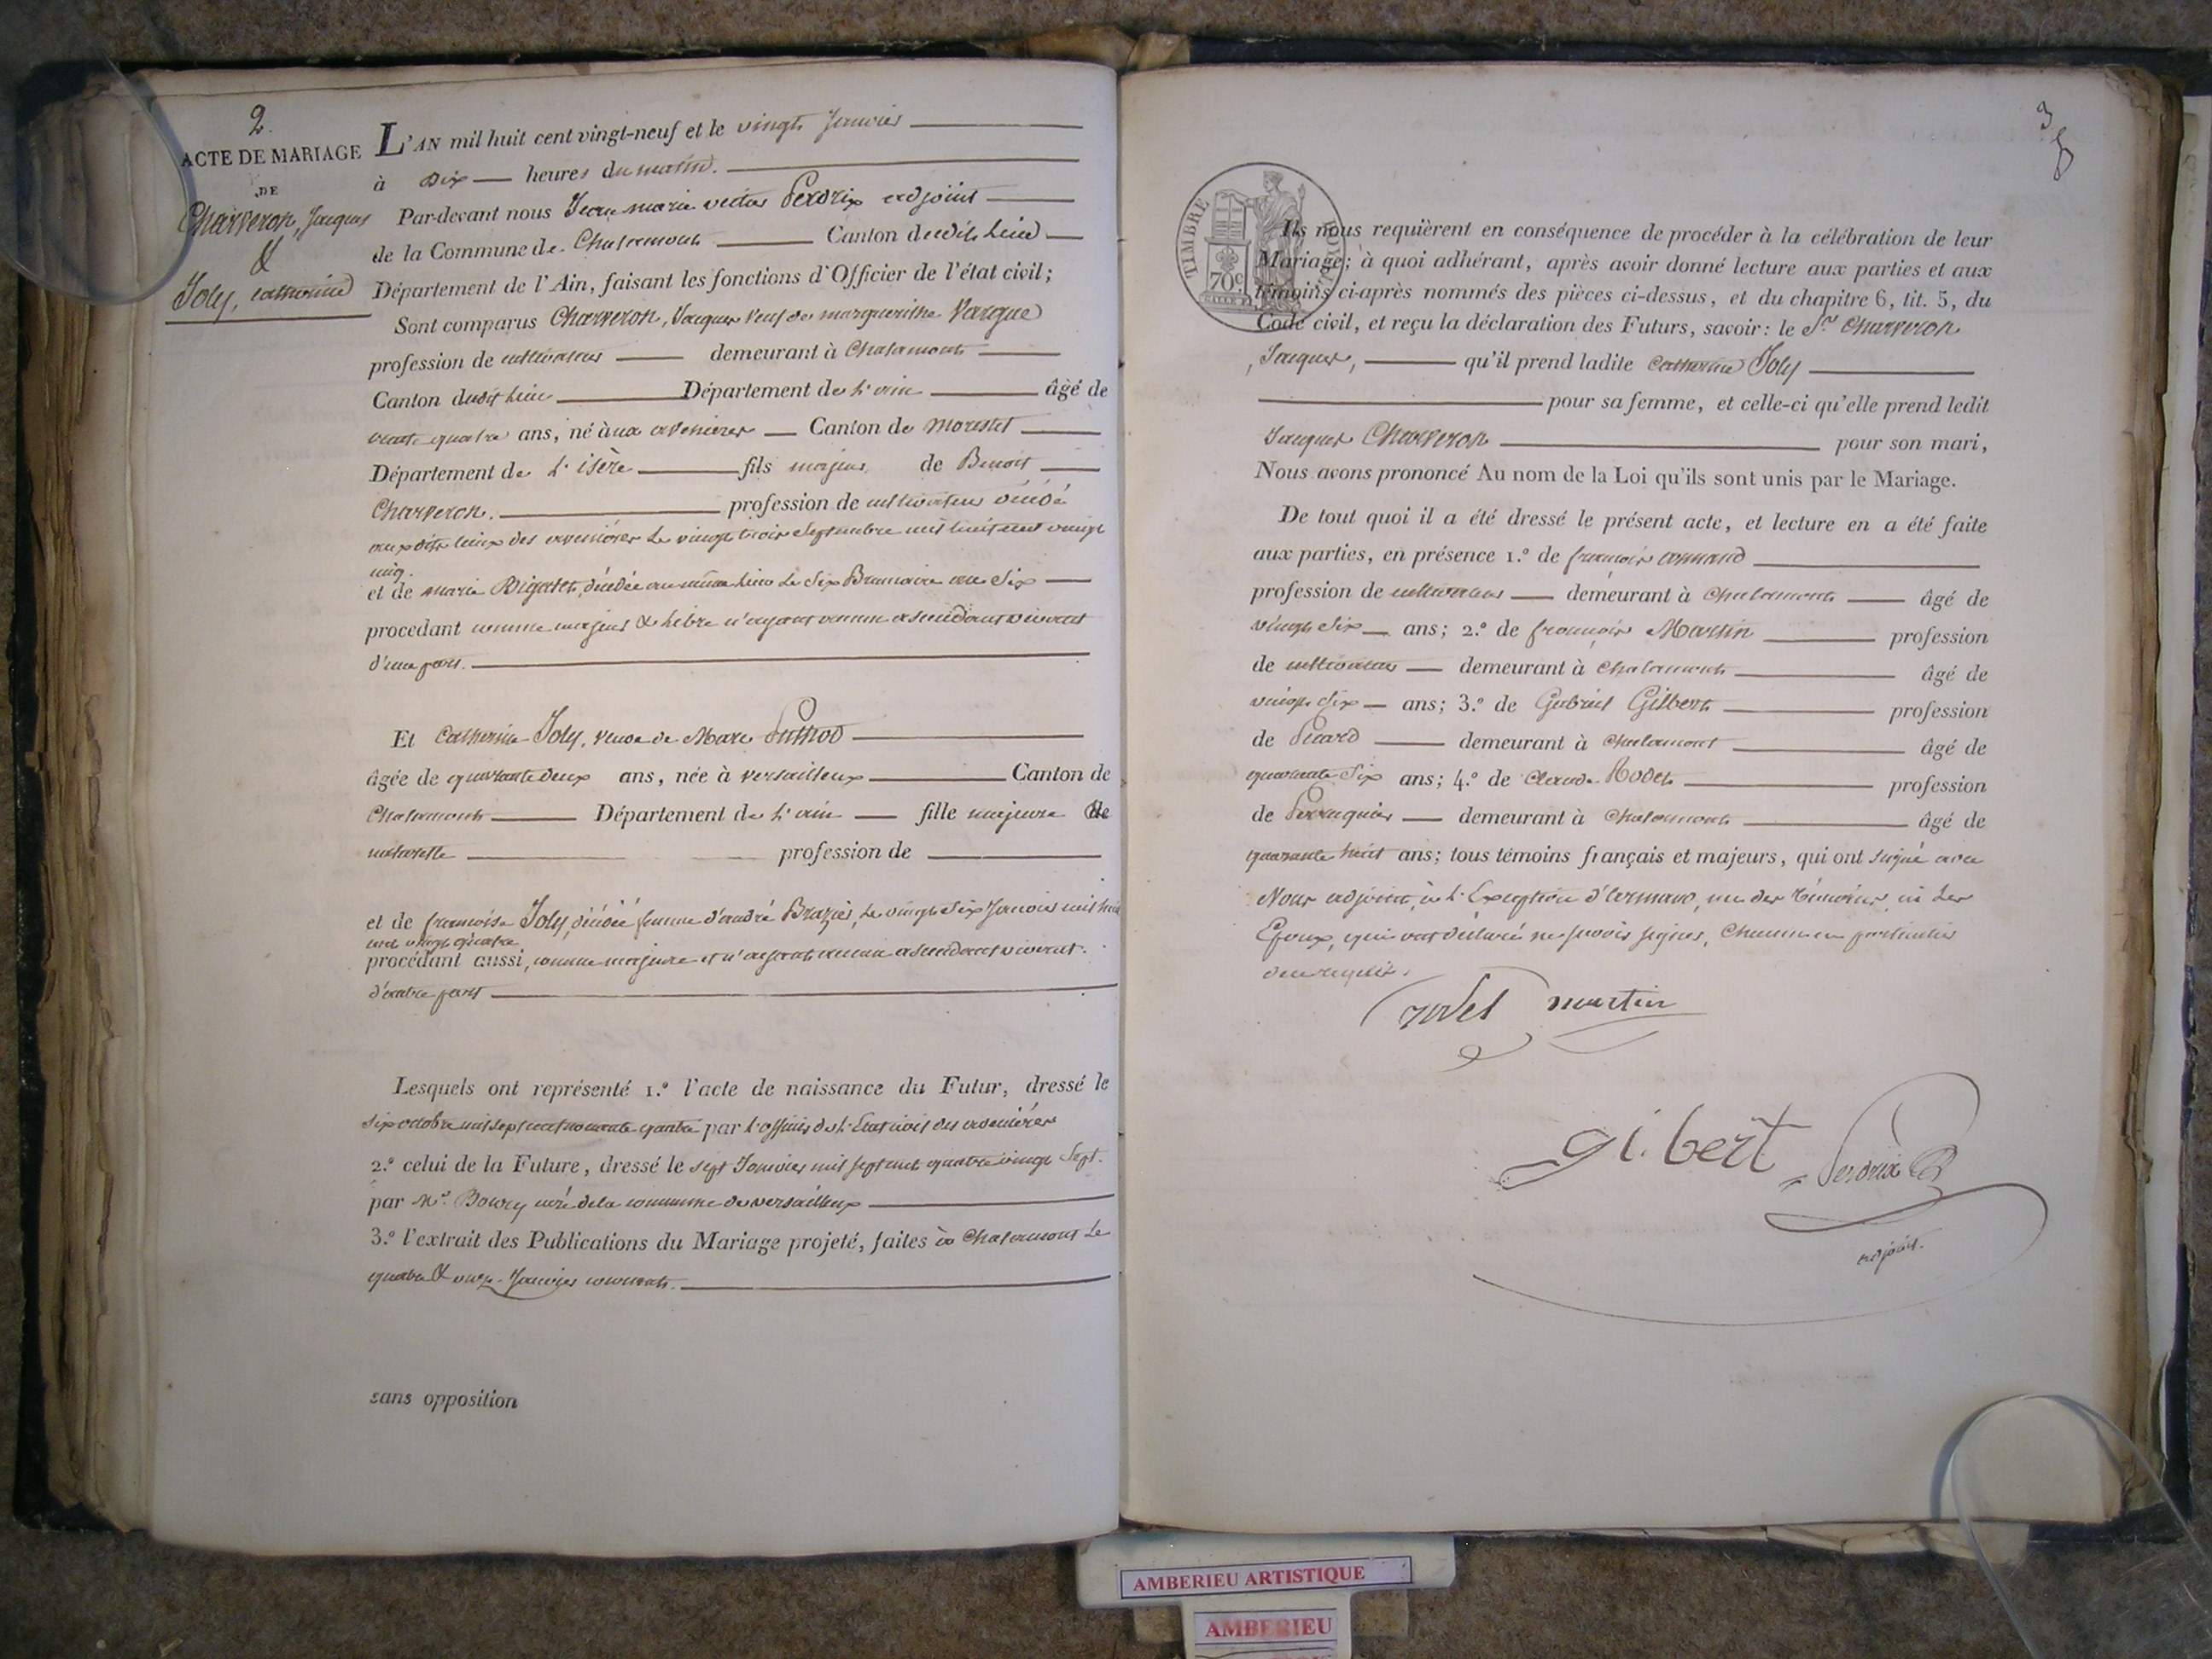 2.
ACTE DE MARIAGE
DE
Charveron, Jacques
&
Joly, Catherine
L'AN mil huit cent vingt-neuf et le vingt Janvier
à dix heures du matin.
Par-devant nous Jean marie victor Perdrix adjoint
de la Commune de Chalamont Canton dudit Lieu
Département de l'Ain, faisant les fonctions d'Officier de l'état civil;
Sont comparus Charveron, Jacques Veuf de marguerithe Vargue
profession de cultivateur demeurant à Chalamont
Canton dudit Lieu Département de L'ain âgé de
trente quatre ans, né aux avenieres Canton de Morestel
Département de L'isère fils majeur de Benoit
Charveron. profession de cultivateur décédé
auxdits lieux des avenières Le vingt trois Septembre mil huit cent vingt
cinq.
et de marie Bigallet, décédée au même lieu Le Six Brumaire an Six
procedant comme majeur & Libre n'ayant aucun ascendant vivant
d'une part.
Et Catherine Joly, veuve de Marc
âgée de quarante deux ans, née à versailleux Canton de
Chalamont Département de L'ain fille majeure &
naturelle profession de
et de francoise Joly, décédée femme d'andré Brazier, Le vingt Six Janvier mil huit
cent vingt quatre
procédant aussi, comme majeure et n'ayant aucun ascendant vivant.
d'autre part
Lesquels ont représenté 1.º l'acte de naissance du Futur, dressé le
six octobre mil sept cent nonante quatre par L'officier de L'Etat civil des avenières
2.º celui de la Future, dressé le sept Janvier mil sept cent quatre vingt Sept.
par Mr. curé de la commune de versailleux
3.º l'extrait des Publications du Mariage projeté, faites à Chalamont Le
quatre & onze Janvier courant.
sans opposition
3
TIMBRE ROYAL
70c
Ils nous requièrent en conséquence de procéder à la célébration de leur
Mariage; à quoi adhérant, après avoir donné lecture aux parties et aux
témoins ci-après nommés des pièces ci-dessus, et du chapitre 6, tit. 5, du
Code civil, et reçu la déclaration des Futurs, savoir: le Sr. Charveron
Jacques, qu'il prend ladite Catherine Joly
pour sa femme, et celle-ci qu'elle prend ledit
Jacques Charveron pour son mari,
Nous avons prononcé Au nom de la Loi qu'ils sont unis par le Mariage.
De tout quoi il a été dressé le présent acte, et lecture en a été faite
aux parties, en présence 1.º de francois armand
profession de cultivateur demeurant à Chalamont âgé de
vingt six ans; 2.º de françois Martin profession
de cultivateur demeurant à Chalamont âgé de
vingt six ans; 3.º de Gabriel Gilbert profession
de demeurant à Chalamont âgé de
quarante Six ans; 4.º de Claude Rodet profession
de Perruquier demeurant à Chalamont âgé de
quarante huit ans; tous témoins français et majeurs, qui ont signé avec
Nous adjoint, à L'Exception d'armand, un des témoins, ni Les
Epoux, qui ont déclaré ne savoir signer, Chacun en particulier
de ce requis.
rodet martin
gilbert
Perdrix
adjoint.
AMBERIEU ARTISTIQUE
AMBERIEU